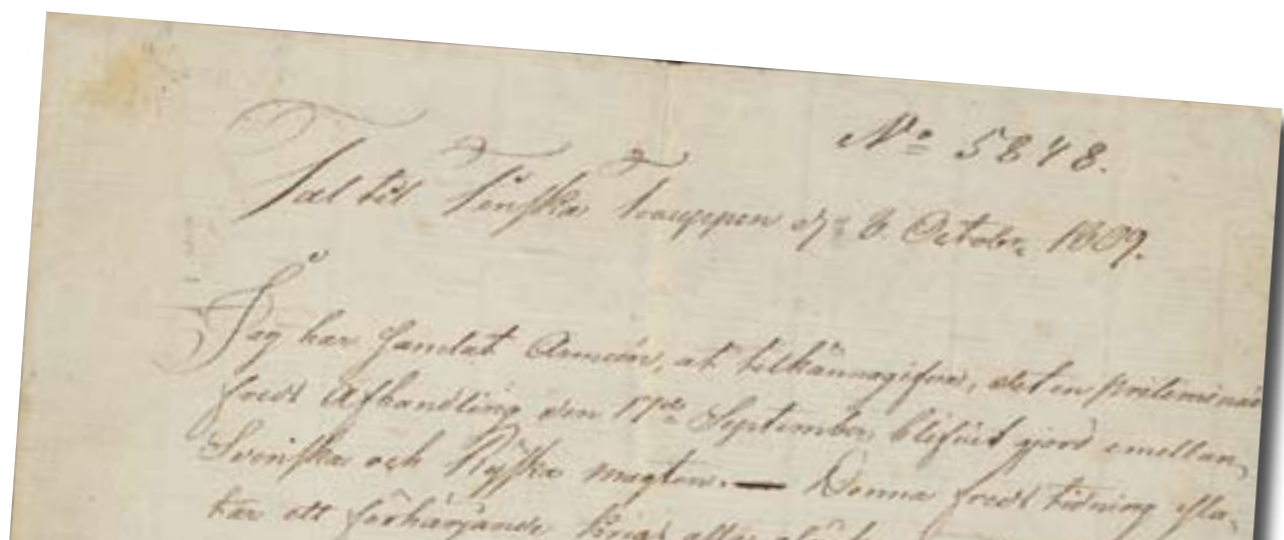 No 5848.
Tal till Finska Trouppen d. 8 October 1809.
Jag har samlat Armeén, at tilkännagifva, det en preliminär
freds Afhandling den 17de September blifvit gjord emellan
Svenska och Ryska magten. — Denna freds tidning
ett förhärjande Krigs